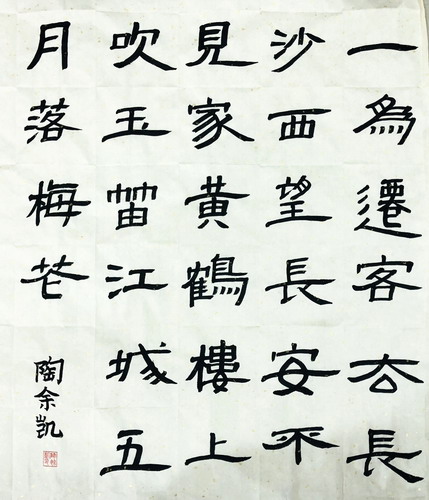 一為遷客去長
沙西望長安不
見家黄鶴樓上
吹玉笛江城五
月落梅花
陶余凯